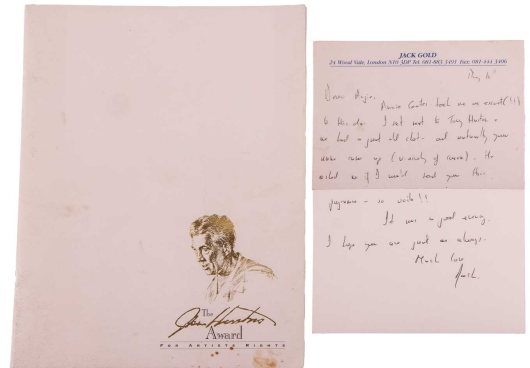 The
John Huston
Award
FOR ARTISTS RIGHTS
JACK GOLD
24 Wood Vale, London N10 3DP Tel: 081-883 3491 Fax: 081-444 3406
Dear
took me as escort (!!)
to this do. I sat next to Tony
we had a good old chat - and naturally your
name came up (
). He
asked me if I would send you this
programme - so voila !!
It was a good evening.
I hope you are good as always.
Much love
Jack.